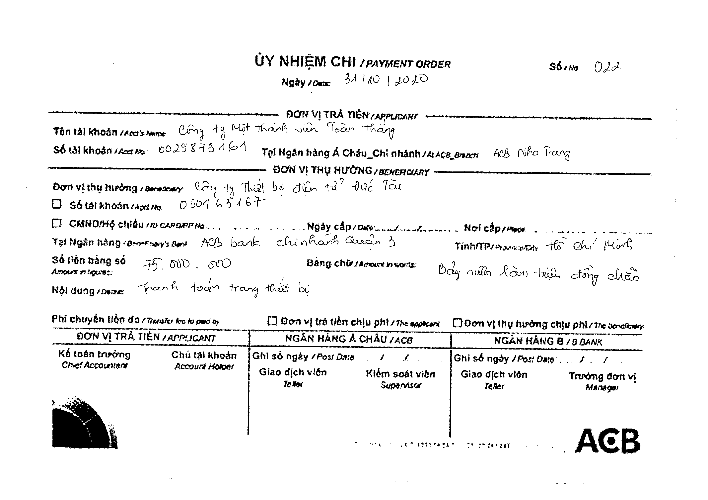 ỦY NHIỆM CHI / PAYMENT ORDER
Số / No 022
Ngày / Date: 31/10/2020
ĐƠN VỊ TRẢ TIỀN / APPLICANT
Tên tài khoản / Acct's Name Công ty Một thành viên Toàn Thắng
Số tài khoản / Acct No. Tại Ngân hàng Á Châu_Chi nhánh / At ACB_Branch: ACB Nha Trang
ĐƠN VỊ THỤ HƯỞNG / BENEFICIARY
Đơn vị thụ hưởng / Beneficiary Công ty Thiết bị điện tử Đức Tân
☐ Số tài khoản / Acct No.
☐ CMND/Hộ chiếu / ID CARD/PP No Ngày cấp / Date Nơi cấp / Place
Tại Ngân hàng - Beneficiary's Bank ACB bank chi nhánh Quận 3 Tỉnh/TP / Province/City Hồ Chí Minh
Số tiền bằng số 75.000.000 Bằng chữ / Amount in words: Bảy mươi lăm triệu đồng chẵn
Amount in figures:
Nội dung / Details: Thanh toán trang thiết bị
Phí chuyển tiền do / Transfer fee to paid by ☐ Đơn vị trả tiền chịu phí / The applicant ☐ Đơn vị thụ hưởng chịu phí / The beneficiary
ĐƠN VỊ TRẢ TIỀN / APPLICANT NGÂN HÀNG Á CHÂU / ACB NGÂN HÀNG B / B BANK
Kế toán trưởng Chủ tài khoản Ghi sổ ngày / Post Date / / Ghi sổ ngày / Post Date / /
Chief Accountant Account Holder Giao dịch viên Kiểm soát viên Giao dịch viên Trưởng đơn vị
Teller Supervisor Teller Manager
ACB